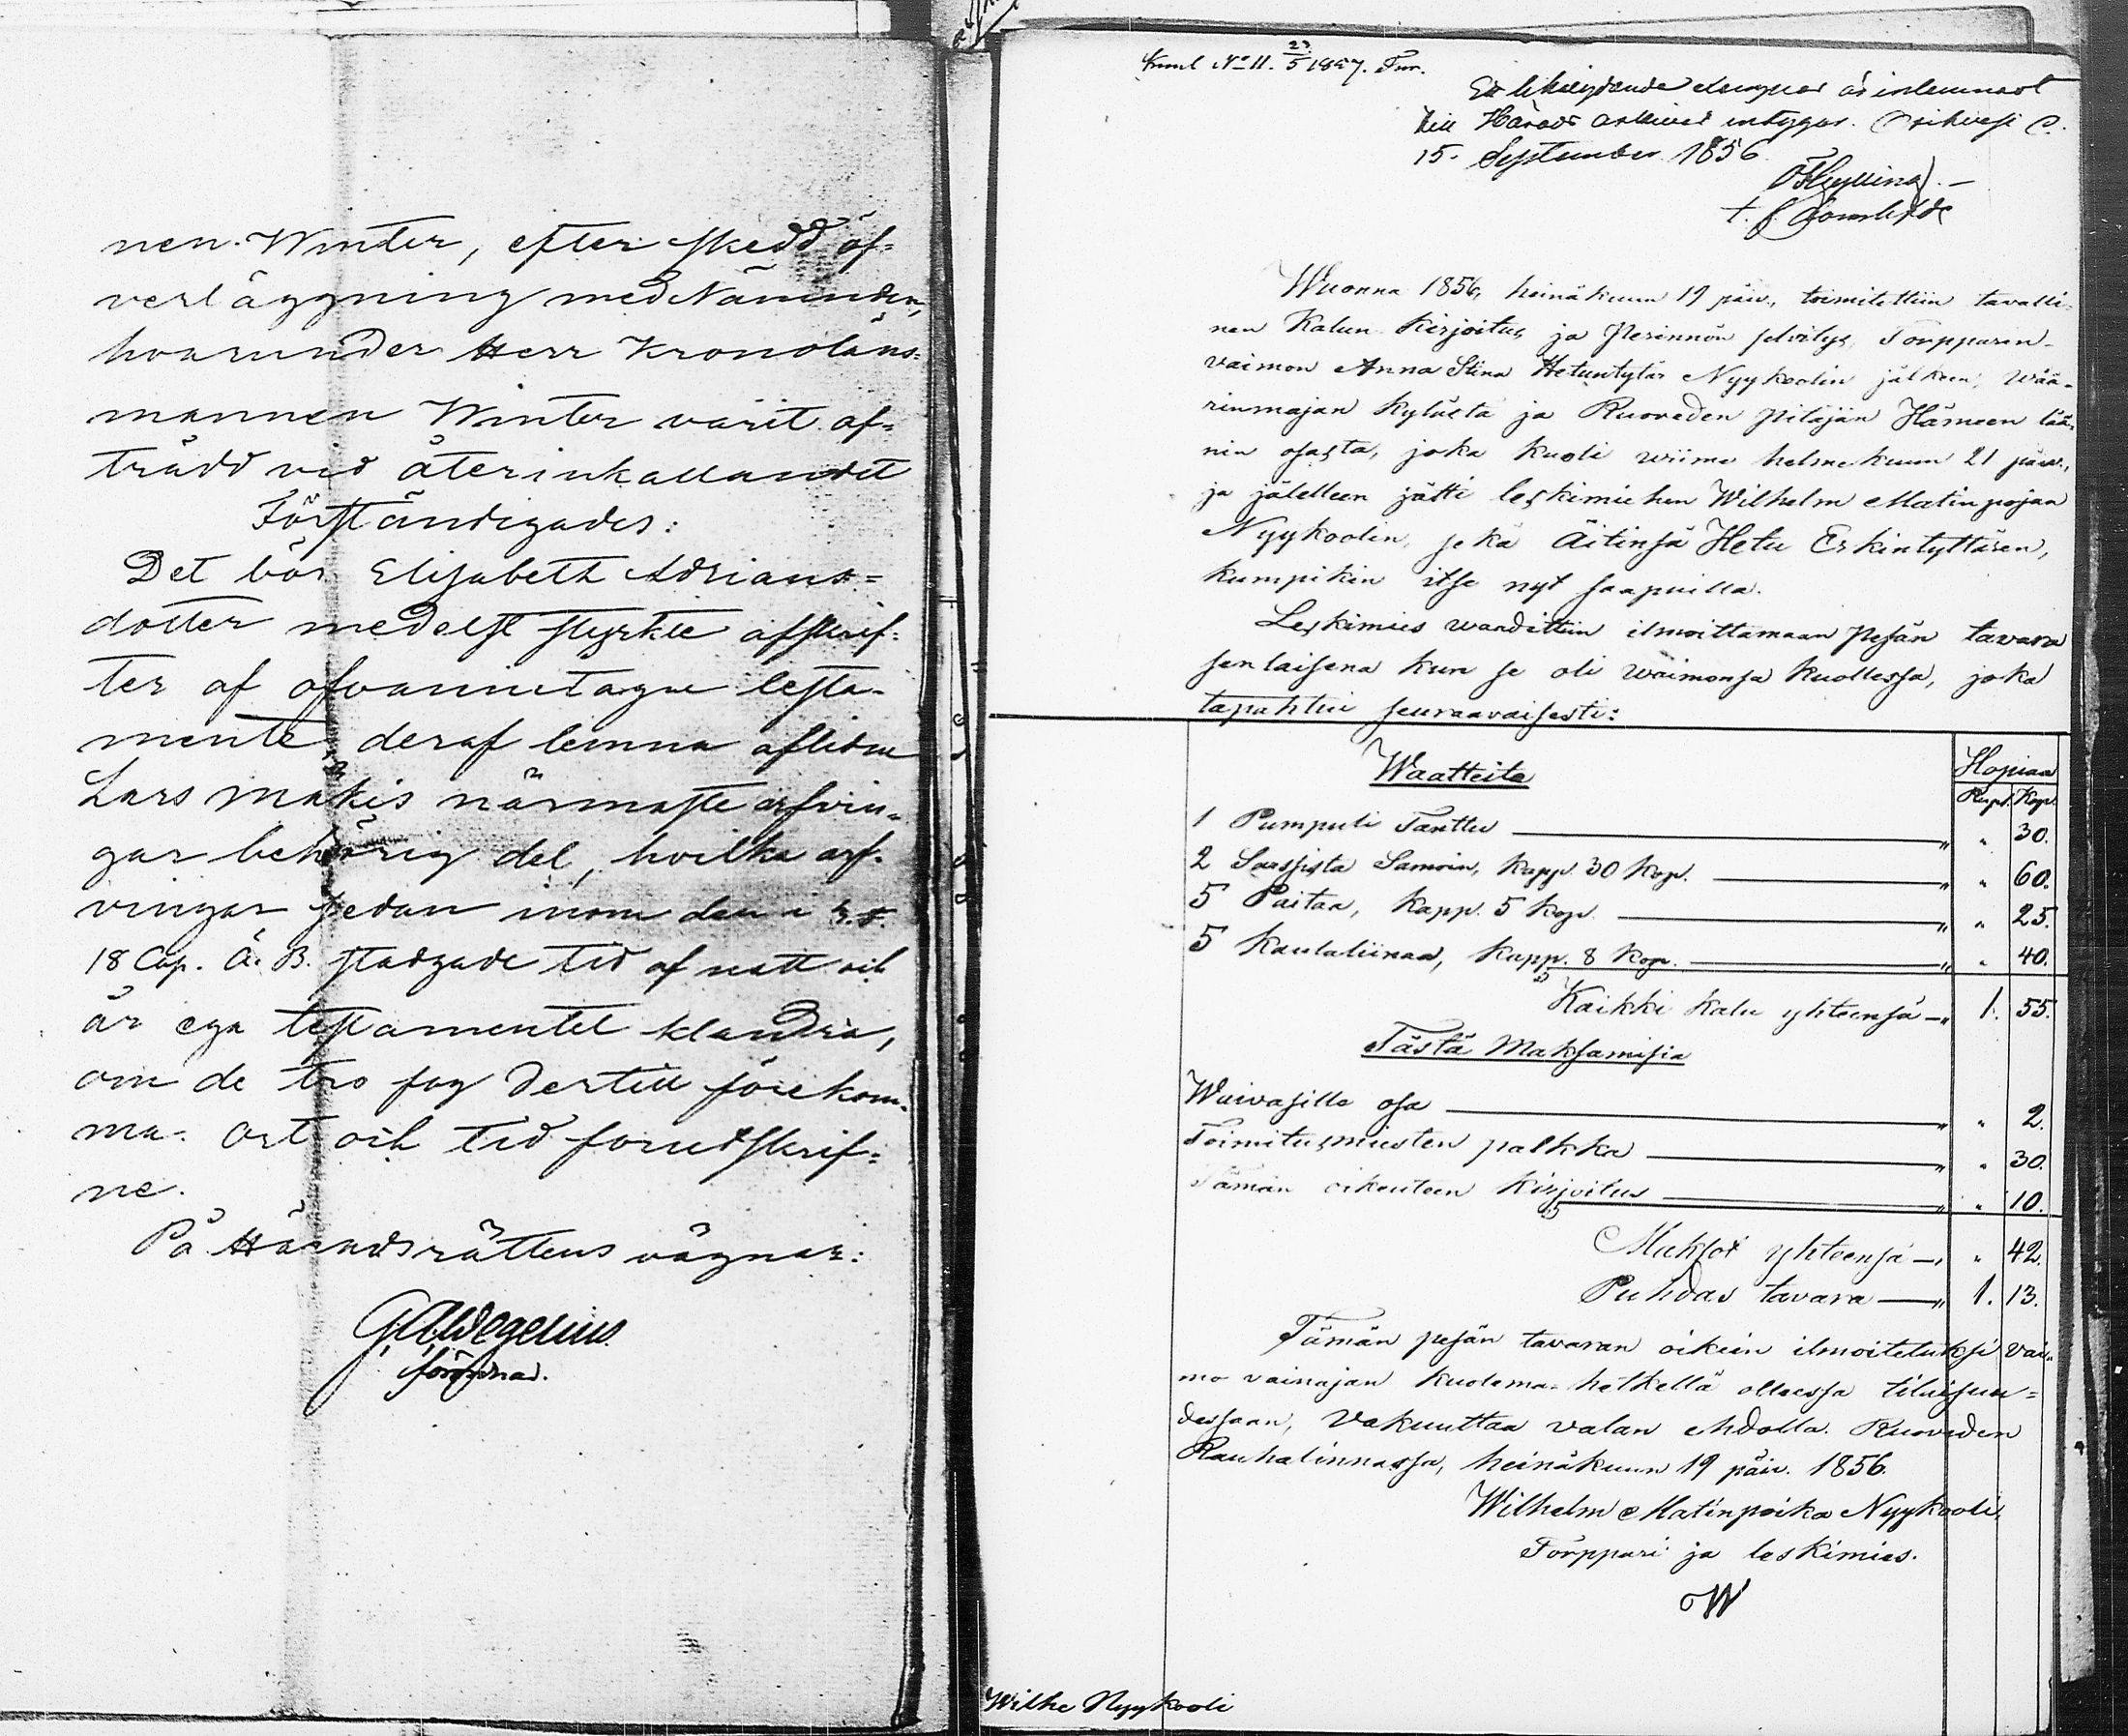 nen Winter, efter skedd öf=
verläggning med Nämnden,
hvarunder Herr Kronoläns=
mannen Winter varit af=
trädd vid återinkallandet
Förständigades:
Det bör Elisabeth Adrians=
dotter medelst styrkte afskrif=
ter af ofvannintagne testa=
mente deraf lemna aflidne
Lars Mäkis närmaste arfvin=
gar behörig del, hvilka arf=
vingar sedan inom den i
18 Cap. Ä. B. stadgade tid af natt och
år ega testamentet klandra,
om de tro sog dertill förekom=
ma. Ort och tid forutskrif=
ne.
På Häradsrättens vägnar:
G. Aldegelius.
förordnad.
No 11. 23/5 1857.
Ett likalydande exemplar är inlemnadt
till Härads arkivet intygar. Orihvesi d.
15. September 1856
t. f. Domhafde
Wuonna 1856, heinäkuun 19 päiv., toimitettiin tavalli=
nen Kalun Kirjoitus ja Perinnön selvitys, Torpparen-
vaimon Anna Stina Hetuntytär Nyykoolin jälkeen, Wää=
rinmajan Kylästä ja Ruoveden pitäjän Hämeen lää=
nin osasta, joka kuoli wiime helmekuun 21 päiv.,
ja jälelleen jätti leskimiehen Wilhelm Matinpojan
Nyykoolin, sekä Äitinsä Hetu Erkintyttären,
kumpikin itse nyt saapuilla.
Leskimies waadittiin ilmoittamaan Pesän tavara
senlaisena kun se oli waimonsa kuollessa, joka
tapahtui seuraavaisesti:
Waatteita
Hopiaa
Rupl. Kop.
1 Pumpuli Tanttu " " 30.
2 Sarssista Samoin, kapp. 30 Kop. " " 60.
5 Paitaa, kapp. 5 kop. " " 25.
5 Kaulaliinaa, kapp. 8 Kop. " " 40.
Kaikki Kalu yhteensä " 1. 55.
Tästä Maksamisia
Waivasille osa " " 2.
Toimitusmiesten palkka " " 30.
Tämän oikeuteen kirjoitus " " 10.
Maksot yhteensä " " 42.
Puhdas tavara " 1. 13.
Tämän pesän tavaran oikein ilmoitetuksi vai=
mo vainajan kuolema-hetkellä olleessa tilaisuu=
dessaan, vakuuttaa valan ehdolla. Ruoveden
Rauhalinnassa, heinäkuun 19 päiv. 1856.
Wilhelm Matinpoika Nyykooli,
Torppari ja leskimies.
W
Wilhe Nyykooli